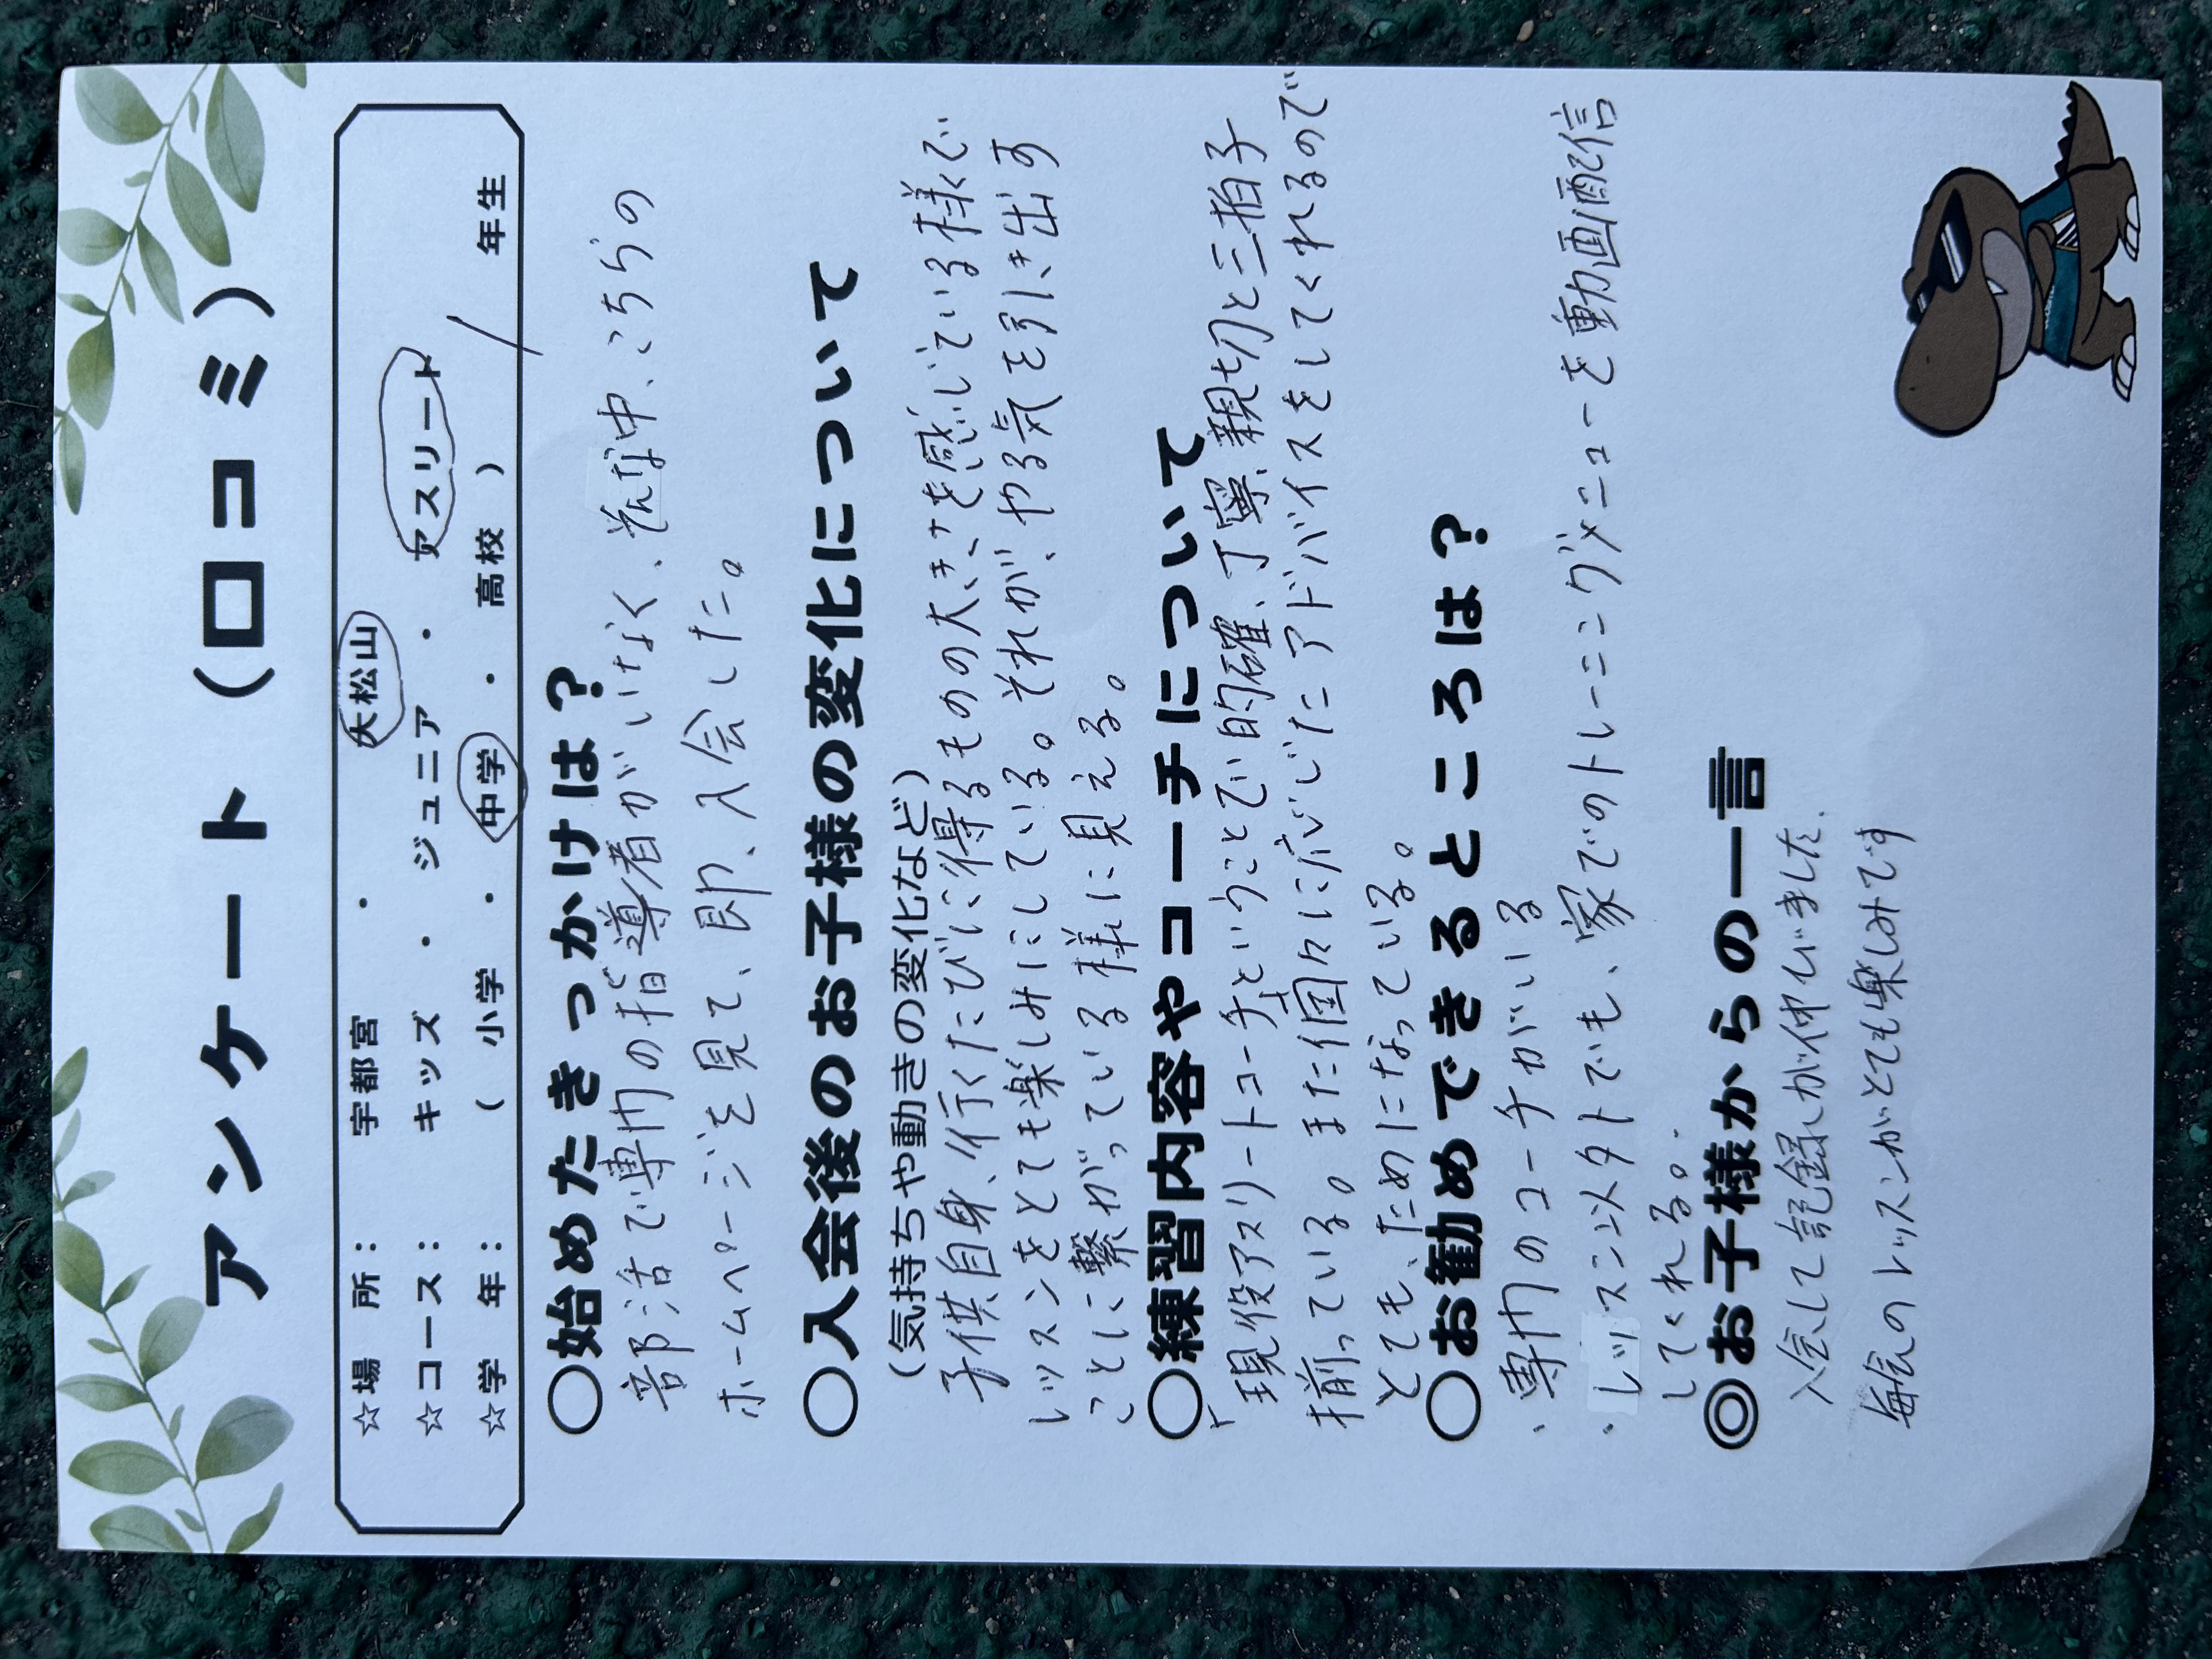 アンケート（口コミ）
☆場　所：　宇都宮　・　大松山
☆コース：　キッズ　・　ジュニア　・　アスリート
☆学　年：　（　小学　・　中学　・　高校　）　1　年生
○始めたきっかけは？
部活で専門の指導者がいなく、そんな中、こちらの
ホームページを見て、即、入会した。
○入会後のお子様の変化について
（気持ちや動きの変化など）
子供自身、行くたびに得るものの大きさを感じている様で
レッスンをとても楽しみにしている。それが、やる気を引き出す
ことに繋がっている様に見える。
○練習内容やコーチについて
「現役アスリートコーチ」ということで的確、丁寧、親切と三拍子
揃っている。また個々に応じたアドバイスをしてくれるので
とても、ためになっている。
○お勧めできるところは？
・専門のコーチがいる
・レッスン以外でも、家でのトレーニングメニューを動画配信
してくれる。
◎お子様からの一言
入会して記録が伸びました。
毎会のレッスンがとても楽しみです